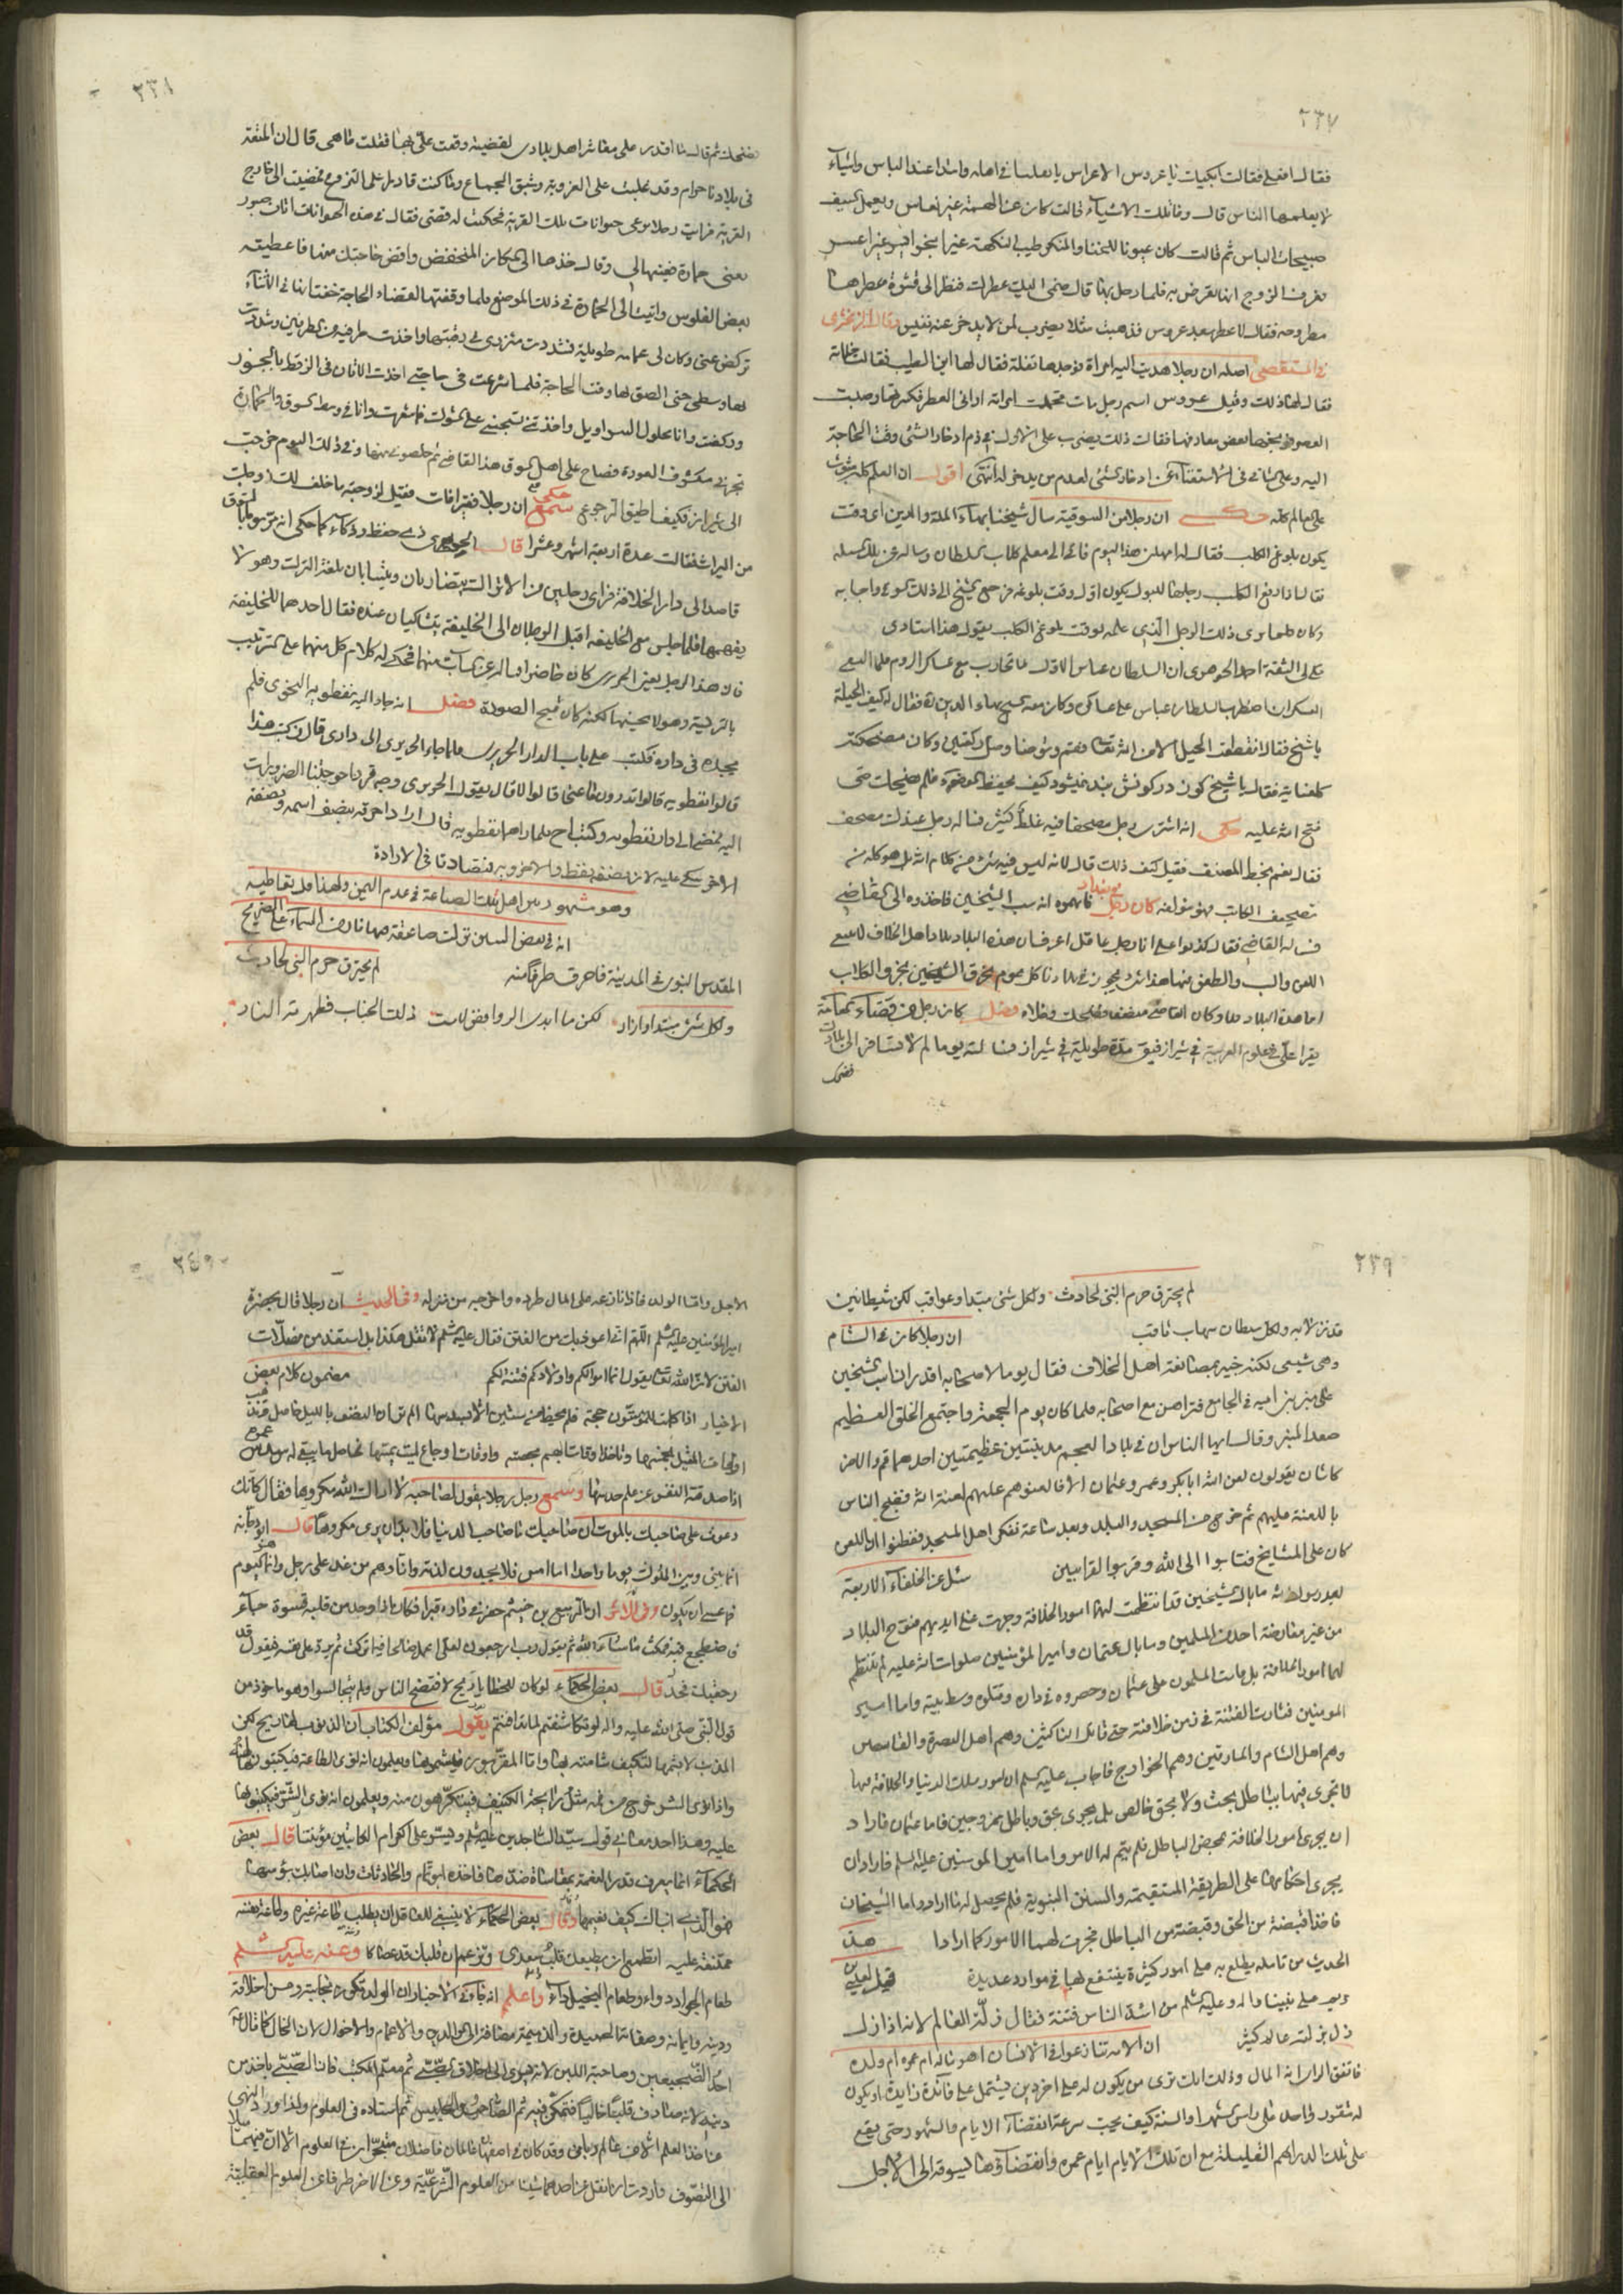 ٢٣٧
فقال افعلي فقالت ابكيك يا عروس الاعراس يا ثعلبا في اهله واسدا عند الباس واشياء
لا يعلمها الناس قال وما تلك الاشياء قالت كان عن الهمة غير نعاس ويعمل السيف
صبيحات الباس ثم قالت كان عيوفا للخنا والمنكر طيب النكهة غير ابخر ايسر غير اعسر
فعرف الزوج انها تعرض به فلما رحل بها قال ضمي اليك عطرك فنظر الى قشوة عطرها
مطروحة فقال لا عطر بعد عروس فذهبت مثلا يضرب لمن لا يدخر عنه نفيس وقال الزمخشري
في المستقصى اصله ان رجلا هديت اليه امراة فوجدها تفلة فقال لها اين الطيب فقالت خباته
فقال لها ذلك وقيل عروس اسم رجل مات فحملت امراته اواني العطر فكسرتها وصبت
العطر فوبخها بعض معارفها فقالت ذلك يضرب على الاول في ذم ادخار الشئ وقت الحاجة
اليه وعلى الثاني في الاستغناء عن ادخار الشئ لعدم من يدخر له انتهى اقول ان العلم كله
على العالم كله حكى ان رجلا من السوقية سال شيخنا بهاء الملة والدين اي وقت
يكون بلوغ الكلب فقال له امهلني هذا اليوم فاتى الى معلم كلاب السلطان وساله عن تلك المسئلة
فقال اذا رفع الكلب رجله للبول يكون اول وقت بلوغه فرجع الشيخ الى ذلك السوقي واجابه
وكان ذلك الرجل الذي علمه لوقت بلوغ الكلب يقول هذا استادي
حكى لي الثقة احمد الجوهري ان السلطان عباس الاول لما تحارب مع عساكر الروم فلما التقى
العسكران اضطرب السلطان عباس على عساكره وكان معه الشيخ بهاء الدين ره فقال له كيف الحيلة
يا شيخ فقال انقطعت الحيل الا من الله تعالى فقم وتوضأ وصل ركعتين وكان مضحكته
فقال يا شيخ كون در كونش بند نميشود كيف يحفظ الوضوء فلم ضحكات حتى
فتح الله عليه حكى انه اشترى رجل مصحفا فيه غلط كثير فساله رجل عندك مصحف
فقال نعم بخط المصنف فقيل كيف ذلك قال لانه ليس فيه شئ من كلام الله بل هو كله من
تصحيف الكاتب فهو مؤلفه كان رجل في بغداد فاتهموه انه سب الشيخين فاخذوه الى القاضي
فساله القاضي فقال كذبوا علي انا رجل عاقل اعرف ان هذه البلاد بلاد اهل الخلاف لا يسع
اللعن والسب والطعن فيها هذا شئ يجوز في بلادنا كل يوم
اما هذه البلاد فلا وكان القاضي منصفا فضحك وخلاه فصل كان رجل من فضلاء
يقرا علي في علوم العربية في شيراز فبقي مدة طويلة في شيراز فسالته يوما لم لا تسافر الى بلادك
فضحك
٢٣٨
فضحك ثم قال ما اقدر على معاشرة اهل بلادي لقضية وقعت علي بها فقلت ما هي قال ان المتعة
في بلادنا حرام وقد غلبت علي العزوبة وشبق الجماع وما كنت قادرا على التزوج فمضيت الى خارج
القرية فرايت رجلا يرعى حيوانات تلك القرية فحكيت له قصتي فقال في هذه الحيوانات اتان
يعني حمارة فعينها لي وقال خذها الى المكان المنخفض واقض حاجتك منها فاعطيته
بعض الفلوس واتيت الى الحمارة في ذلك الموضع فلما وقفتها لقضاء الحاجة خفت انها في الاثناء
تركض عني وكان لي عمامة طويلة فشددت مئزري في رقبتها واخذت طرفيه من الطرفين وشددت
بها وسطي حتى الصق بها وقت الحاجة فلما شرعت في حاجتي اخذت الاتان في الزقط بالحضور
وركضت وانا محلول السراويل واخذت تسحبني على الشوك فما شعرت وانا في وسط السوق والحمارة
تجرني مكشوف العورة فصاح علي اهل السوق هذا القاضي ثم خلصوني منها وفي ذلك اليوم خرجت
الى شيراز فكيف اطيق الرجوع سمع ان رجلا فقيرا مات فقيل لزوجته ما خلف لك زوجك
من الميراث فقالت عدة اربعة اشهر وعشرا قال الحريري في حفظه وذكائه كما حكي انه مر يوما بالسوق
قاصدا الى دار الخلافة فراى رجلين من الاتراك يتضاربان ويتسابان بلغة الترك وهو لا
يفهمها فلما جلس مع الخليفة اقبل الرجلان الى الخليفة يتشاكيان عنده فقال احدهما للخليفة
فان هذا الرجل يعني الحريري كان حاضرا فساله عن السباب منهما فحكى له كلام كل منهما على الترتيب
بالتركية وهو لا يحسنها لكنه كان قبيح الصورة فصل انه جاء اليه نفطويه النحوي فلم
يجده في داره فكتب على باب الدار الحريري فلما جاء الحريري الى داره قال من كتب هذا
قالوا نفطويه قالوا تدرون ما عنى قالوا لا قال يقول الحريري وجه قرد
اليه فمضى الى دار نفطويه وكتب اح فلما راها نفطويه قال اراد احرقه بنصف اسمه
الاخر بكى عليه لان نصفه نفط والاخر ويه فتصادفا في الارادة
وهو مشهور بين اهل تلك الصناعة في عدم اليمن ولهذا قل تعاطيه
انه في بعض السنين نزلت صاعقة من السماء على الضريح
المقدس النبوي في المدينة فاحرق طرفا منه لم يحترق حرم النبي لحادث
ولكل شئ مبتدا وازار لكن ما ايدي الروافض لامست ذلك الجناب فطهرته النار
٢٣٩
لم يحترق حرم النبي لحادث ولكل شئ مبتدا وعواقب لكن شيطانين
قد نزلا به ولكل شيطان شهاب ثاقب ان رجلا كان في الشام
وهي شيعي لكنه خير بمصانعة اهل الخلاف فقال يوما لاصحابه اقدر ان اسب الشيخين
على منبر بني امية في الجامع فتراهن مع اصحابه فلما كان يوم الجمعة واجتمع الخلق العظيم
صعد المنبر وقال ايها الناس ان في بلاد العجم مدينتين عظيمتين احدهما قم والاخر
كاشان يقولون لعن الله ابابكر وعمر وعثمان الا فالعنوهم عليهم لعنة الله فضج الناس
باللعنة عليهم ثم خرج من المسجد والبلد وبعد ساعة تفكر اهل المسجد ففطنوا ان اللعن
كان على المشايخ فتابوا الى الله وقربوا القرابين سئل عن الخلفاء الاربعة
بعد رسول الله ما بال الشيخين قد انتظمت لهما امور الخلافة وجرت على ايديهم فتوح البلاد
من غير معارضة احد من المسلمين وما بال عثمان وامير المؤمنين صلوات الله عليه لم تنتظم
لهما امور الخلافة بل قامت المسلمون على عثمان وحصروه في داره وقتلوه وسط بيته واما امير
المومنين فثارت الفتنة في زمن خلافته حتى قاتل الناكثين وهم اهل البصرة والقاسطين
وهم اهل الشام والمارقين وهم الخوارج فاجاب عليه السلم ان امور ملك الدنيا والخلافة فيها
لا تجرى فيها بباطل بحت ولا بحق خالص بل يجري بحق وباطل ممزوجين فاما عثمان فاراد
ان يجري امور الخلافة بمحض الباطل فلم يتم له الامر واما امير المومنين عليه السلم فاراد ان
يجري احكامها على الطريقة المستقيمة والسنن النبوية فلم يحصل له ما اراد واما الشيخان
فاخذا قبضة من الحق وقبضة من الباطل فجرت لهما الامور كما ارادا هذا
الحديث من تامله يطلع به على امور كثيرة ينتفع لها في موارد عديدة قيل لعيسى بن
مريم على نبينا واله وعليه السلم من اشد الناس فتنة فقال زلة العالم لانه اذا زل
زل بزلته عالم كثير ان الامة تنازعوا في الانسان اهو ماله ام عمره ام ولده
فاتفق الراي انه المال وذلك انك ترى من يكون له على اخر دين يشتمل على فائدة زايدة او يكون
له شقور واصل على راس الشهر او السنة كيف يحب سرعة انقضاء الايام والشهور حتى يقع
على تلك الدراهم القليلة مع ان تلك الايام ايام عمره وانقضاؤها يسوقه الى الاجل
٢٤٠
الاجل واما الولد فاذا نازعه على المال طرده واخرجه من منزله وفي الحديث ان رجلا قال بحضرة
امير المؤمنين عليه السلم اللهم اني اعوذ بك من الفتن فقال عليه السلم لا تقل هكذا بل استعذ من مضلات
الفتن لان الله تعالى يقول انما اموالكم واولادكم فتنة لكم مضمون كلام بعض
الاخيار اذا كملت للمؤمن ستون حجة فلم يحظ من ستين الا بسدسها الم تر ان النصف بالليل حاصل فتذهب
اوقات المقيل بخمسها وتاخذ اوقات الهموم بحصة واوقات اوجاع تميت بمسها فحاصل ما يبقى له سدس عمره
اذا صدقته النفس عن علم حدسها وسمع رجل رجلا يقول لصاحبه لا اراك الله مكروها فقال كانك
دعوت على صاحبك بالموت ان صاحبك ما صاحب الدنيا فلابد ان يرى مكروها قال ابو حازم
انما بيني وبين الملوك يوما واحدا اما امس فلا يجدون لذته وانا وهم من غد على وجل وانما هو اليوم
فما عسى ان يكون وفي الاثر ان الربيع بن خيثم حفر في داره قبرا فكان اذا وجد من قلبه قسوة جاء
فاضطجع فيه فمكث ما شاء الله ثم يقول رب ارجعون لعلي اعمل صالحا فيما تركت ثم يرد على نفسه فيقول قد
رجعتك فجد قال بعض الحكماء لو كان للخطايا ريح لافتضح الناس ولم يتجالسوا وهو ماخوذ من
قول النبي صلى الله عليه واله لو تكاشفتم لما تدافنتم يقول مؤلف الكتاب ان الذنوب لها ريح لكن
المذنب لا يشمها لتكيف شامته بها واما المقربون فيشمونها ويعلمون انه نوى الطاعة فيكتبونها له
واذا نوى الشر خرج من فمه مثل رايحة الكنيف فيتكرهون منه ويعلمون انه نوى الشر فيكتبونها
عليه وهذا احد معاني قول سيد الساجدين عليه السلم ويسر على الكرام الكاتبين مؤنتنا قال بعض
الحكماء انما يعرف قدر النعمة بمقاساة ضدها فاخذه ابو تمام والحادثات وان اصابك بؤسها
فهو الذي انباك كيف نعيمها وقال بعض الحكماء لا ينبغي للعاقل ان يطلب طاعة غيره وطاعة نفسه
ممتنعة عليه اتطمع ان يطيعك قلب سعدى وتزعم ان قلبك قد عصاكا وعنه عليه السلم
طعام الجواد دواء وطعام البخيل داء واعلم انه جاء في الاخبار ان الولد تكون نجابته وحسن اخلاقه
ودينه وايمانه وصفاته الحميدة والذميمة مضافة الى الوالدين والاعمام والاخوال لان الخال كما قال
احد الضجيعين وصاحبة اللبن لانه يسري الى اخلاق الصبي ثم معلم المكتب فان الصبي ياخذ من
دينه لانه صادف قلبا خاليا فتمكن فيه ثم الصاحب والجليس ثم استاده في العلوم ولذا ورد النهي
عن اخذ العلم الا من عالم رباني وقد كان في اصفهان عالمان فاضلان متبحران في العلوم الا ان فيهما ميلا
الى التصوف واردت ان انقل عن احدهما شيئا من العلوم الشرعية وعن الاخر طرفا من العلوم العقلية